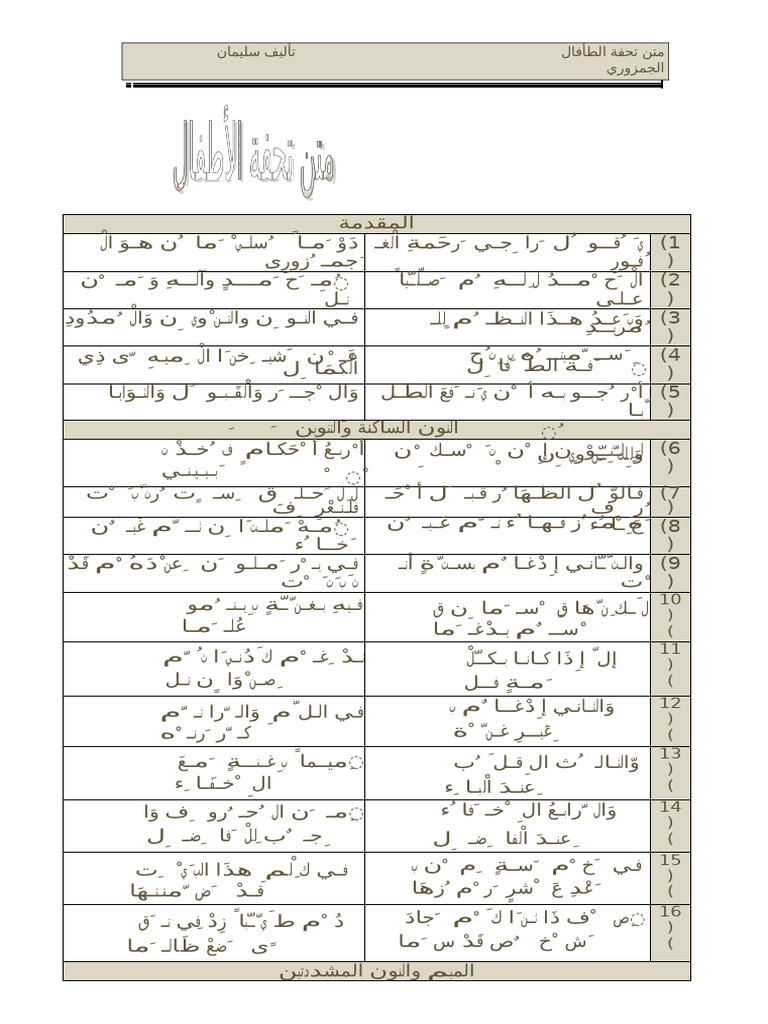 متن تحفة الطأفال تأليف سليمان
الجمزوري
متن تحفة الأطفال
المقدمة
(1) يَقُولُ رَاجِي رَحْمَةِ الْغَفُورِ دَوْمًا سُلَيْمَانُ هُوَ الْجَمْزُورِي
(2) الْحَمْدُ لِلَّهِ مُصَلِّيًا عَلَى مُحَمَّدٍ وَآلِهِ وَمَنْ تَلَا
(3) وَبَعْدُ هَذَا النَّظْمُ لِلْمُرِيدِ فِي النُّونِ وَالتَّنْوِينِ وَالْمُدُودِ
(4) سَمَّيْتُهُ بِتُحْفَةِ الْأَطْفَالِ عَنْ شَيْخِنَا الْمِيهِيِّ ذِي الْكَمَالِ
(5) أَرْجُو بِهِ أَنْ يَنْفَعَ الطُّلَّابَا وَالْأَجْرَ وَالْقَبُولَ وَالثَّوَابَا
النون الساكنة والتنوين
(6) لِلنُّونِ إِنْ تَسْكُنْ وَلِلتَّنْوِينِ أَرْبَعُ أَحْكَامٍ فَخُذْ تَبْيِينِي
(7) فَالْأَوَّلُ الْإِظْهَارُ قَبْلَ أَحْرُفِ لِلْحَلْقِ سِتٍّ رُتِّبَتْ فَلْتَعْرِفِ
(8) هَمْزٌ فَهَاءٌ ثُمَّ عَيْنٌ حَاءُ مُهْمَلَتَانِ ثُمَّ غَيْنٌ خَاءُ
(9) والثَّانِي إِدْغَامٌ بِسِتَّةٍ أَتَتْ فِي يَرْمُلُونَ عِنْدَهُمْ قَدْ ثَبَتَتْ
(10) لَكِنَّهَا قِسْمَانِ قِسْمٌ يُدْغَمَا فِيهِ بِغُنَّةٍ بِيَنْمُو عُلِمَا
(11) إِلَّا إِذَا كَانَا بِكِلْمَةٍ فَلَا تُدْغِمْ كَدُنْيَا ثُمَّ صِنْوَانٍ تَلَا
(12) وَالثَّانِي إِدْغَامٌ بِغَيْرِ غُنَّةْ فِي اللَّامِ وَالرَّا ثُمَّ كَرِّرَنَّهْ
(13) وَالثَّالِثُ الْإِقْلَابُ عِنْدَ الْبَاءِ مِيمًا بِغُنَّةٍ مَعَ الْإِخْفَاءِ
(14) وَالرَّابِعُ الْإِخْفَاءُ عِنْدَ الْفَاضِلِ مِنَ الْحُرُوفِ وَاجِبٌ لِلْفَاضِلِ
(15) فِي خَمْسَةٍ مِنْ بَعْدِ عَشْرٍ رَمْزُهَا فِي كِلْمِ هَذَا الْبَيْتِ قَدْ ضَمَّنْتُهَا
(16) صِفْ ذَا ثَنَا كَمْ جَادَ شَخْصٌ قَدْ سَمَا دُمْ طَيِّبًا زِدْ فِي تُقًى ضَعْ ظَالِمَا
الميم والنون المشددتين